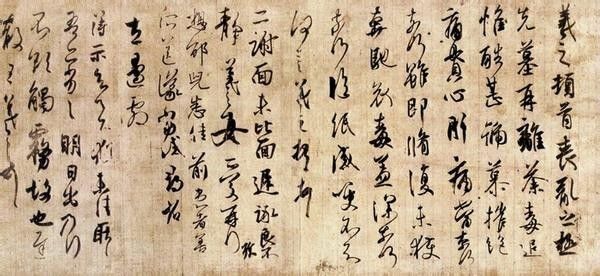 羲之頓首喪亂之極
先墓再離荼毒追
惟酷甚號慕摧絕
痛貫心肝痛當奈何
奈何雖即脩復未獲
奔馳哀毒益深奈何
奈何臨紙感哽不知
何言羲之頓首頓首
二謝面未比面遲詠良不
靜羲之女愛再拜
想邰兒悉佳前患者善
左邊劇
得示知足下猶未佳耿耿
吾亦劣劣明日出乃行
不欲觸霧故也遲
散王羲之頓首